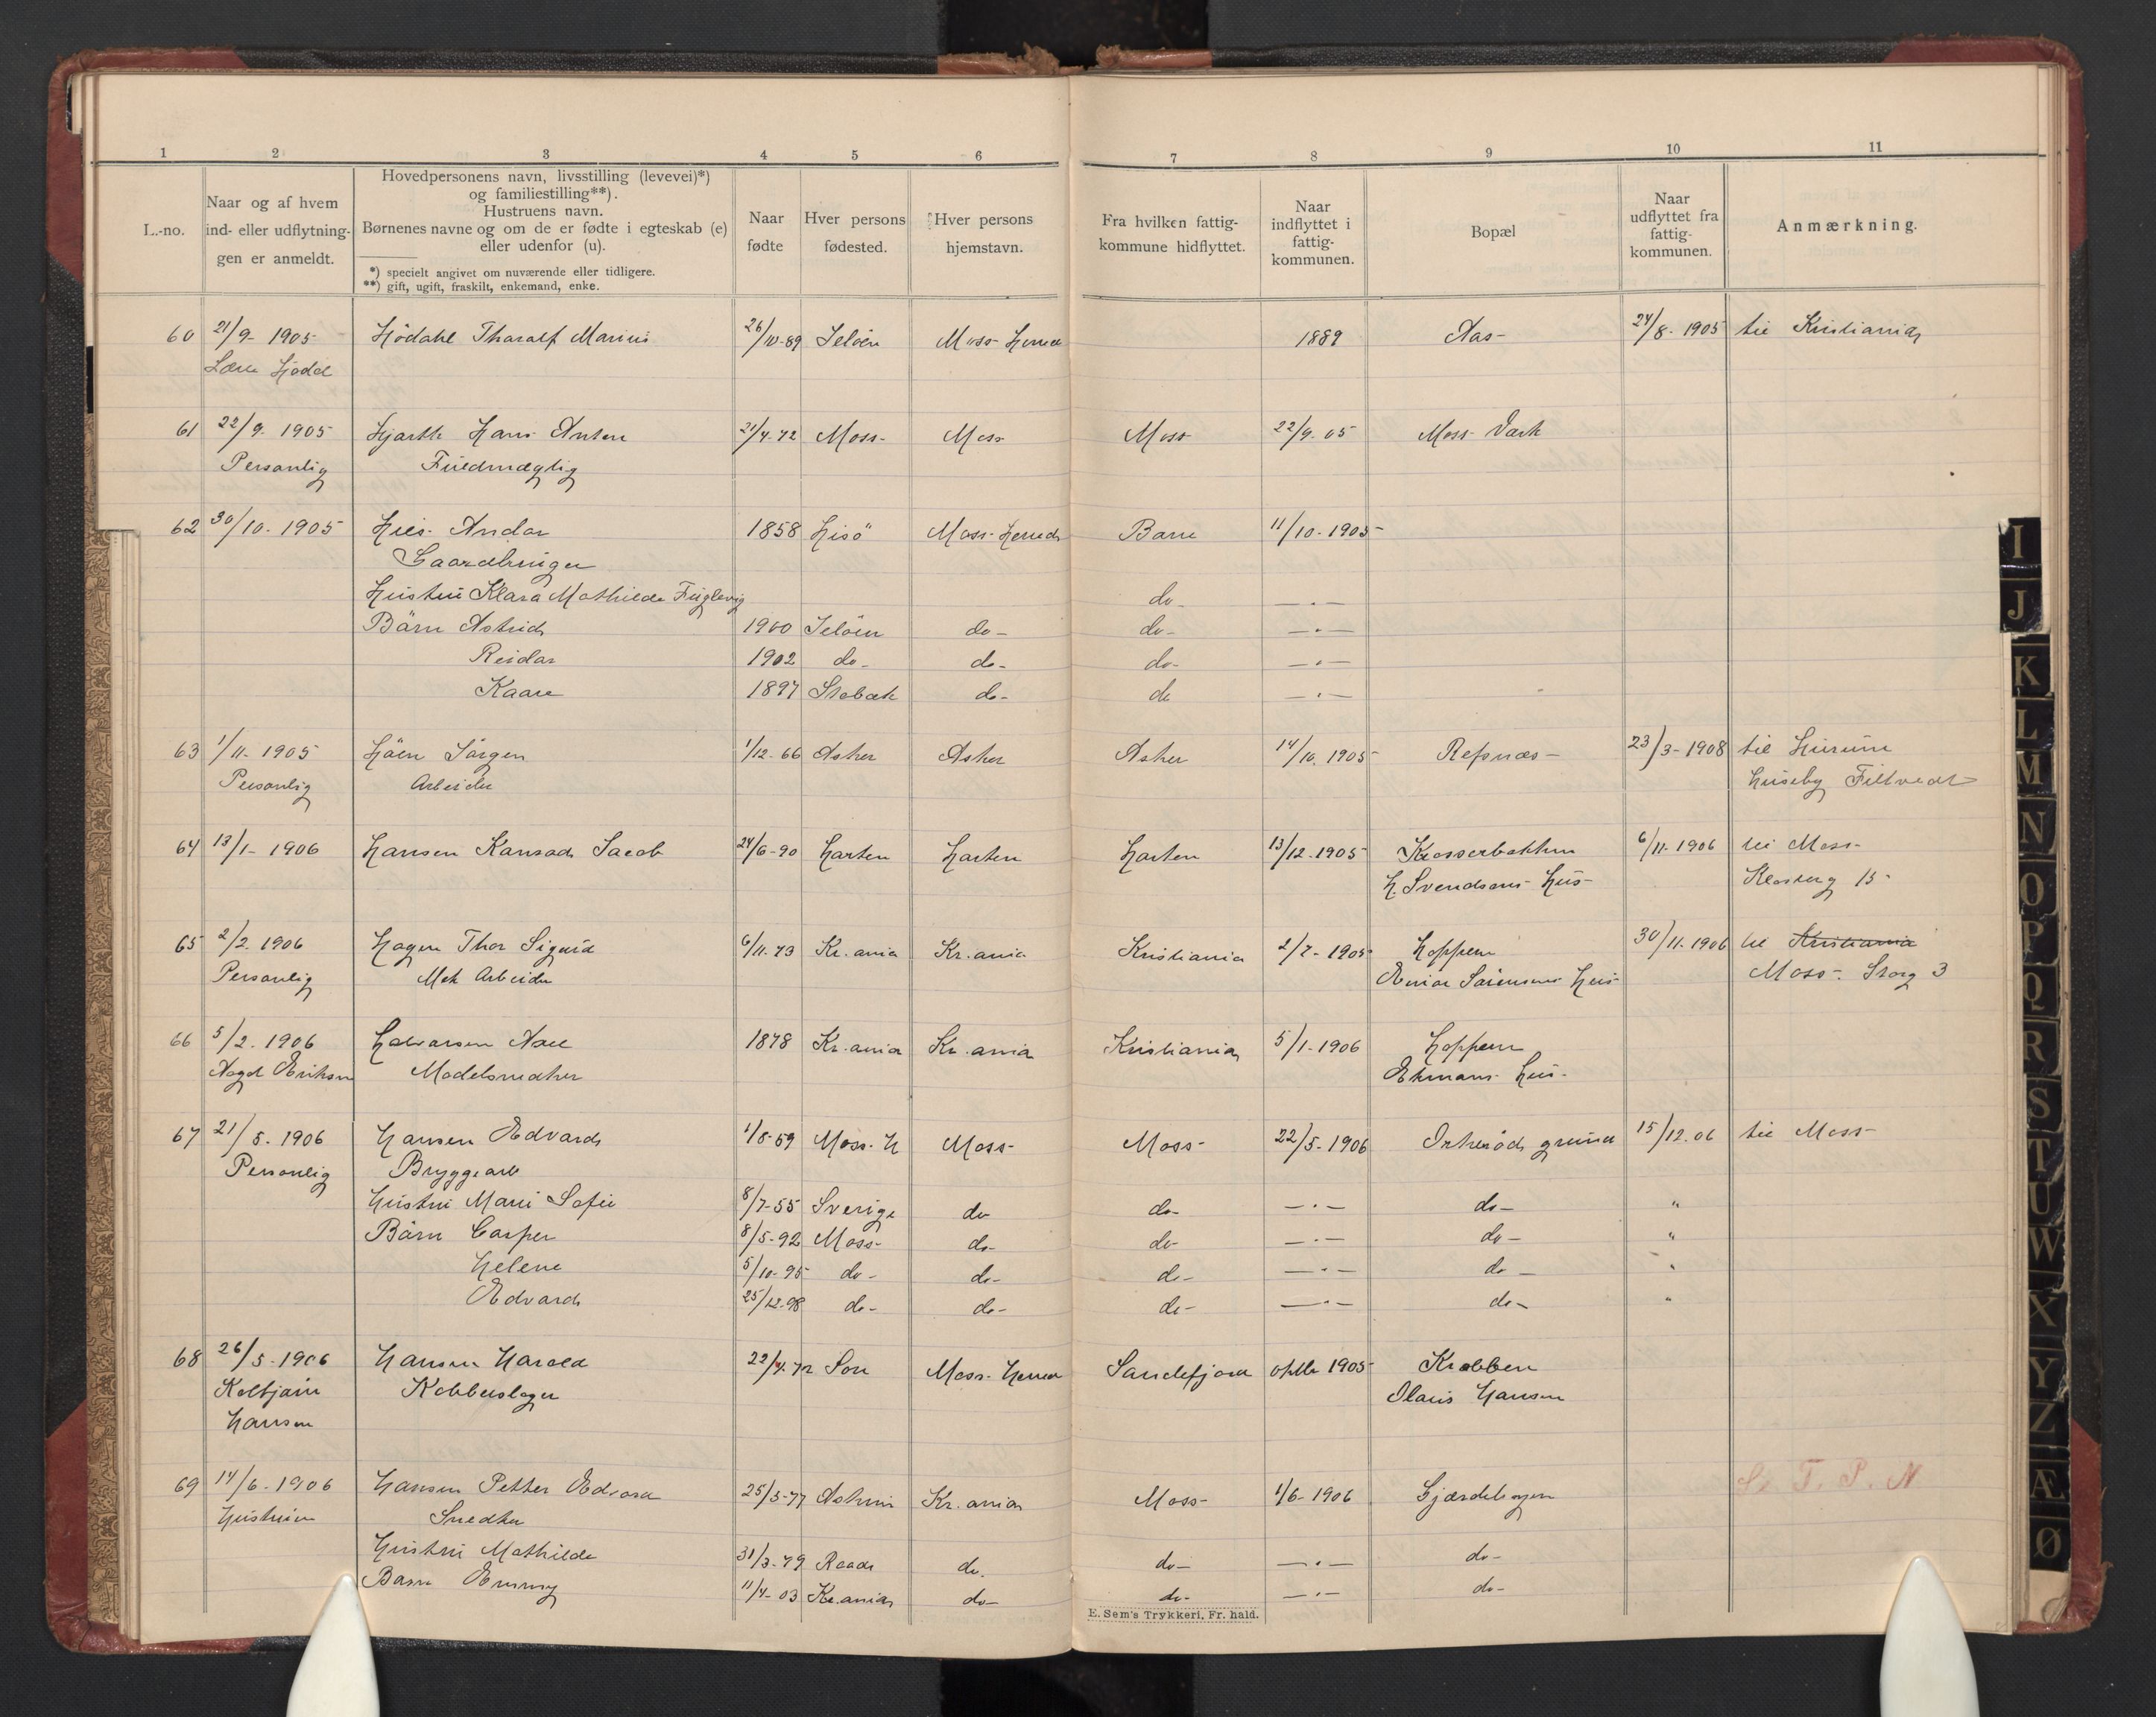 1 2 3 4 5 6 7 8 9 10 11
L.-no.
Naar og af hvem
ind- eller udflytnin-
gen er anmeldt.
Hovedpersonens navn, livsstilling (levevei)*)
og familiestilling**).
Hustruens navn.
Børnenes navne og om de er fødte i egteskab (e)
eller udenfor (u).
*) specielt angivet om nuværende eller tidligere.
**) gift, ugift, fraskilt, enkemand, enke.
Naar
fødte
Hver persons
fødested.
Hver persons
hjemstavn.
Fra hvilken fattig-
kommune hidflyttet.
Naar
indflyttet i
fattig-
kommunen.
Bopæl
Naar
udflyttet fra
fattig-
kommunen.
Anmærkning.
60 21/9 1905 Hödahl Tharalf Marius 26/10-89 Jelöen Moss Herred 1889 Aas 24/8-1905 til Kristiania
61 22/9. 1905 Hjorth Hans Anton 21/4-72 Moss Moss Moss 22/9.05 Moss Værk
Personlig Fuldmægtig
62 30/10-1905 Andor 1858 Hisö Moss Herred Borre 11/10-1905
Gaardbruger
Hustru Klara Mathilde Fuglevig do - . -
Börn Astrid 1900 Jelöen do do - . -
Reidar 1902 do do do - . -
Kaare 1897 Stabæk do do - . -
63 1/11-1905 Höen Jörgen 1/12-66 Asker Asker Asker 14/10.1905 Refsnæs 23/3-1908 til Hurum
Personlig Arbeider Huseby Filtvedt
64 13/1-1906 Hansen Konrad Jacob 24/6-90 Horten Horten Horten 13/12-1905 Krosserbakken 6/11-1906 til Moss
H. Svendsens Hus Kloster g 15
65 2/2.1906 Hagen Thor Sigurd 6/11.73 Kr.ania Kr.ania Kristiania 2/7-1905 Hoppern 30/11.1906 til Kristiania
Personlig Mek Arbeider Sörensens Hus Moss. Storg 3
66 5/2.1906 Halvorsen 1878 Kr.ania Kr.ania Kristiania 5/1-1906 Hoppern
Aagot Eriksen Modelsnedker Ekmans Hus
67 21/5.1906 Hansen Edvard 1/8-59 Moss H Moss Moss 22/5-1906 Orkeröd grund 15/12.06 til Moss
Personlig Bryggearb
Hustru Mari Sofie 8/7-55 Sverige do do - . - do "
Börn Casper 8/5-92 Moss do do - . - do "
Helene 5/10-95 do do do - . - do "
Edvard 25/12-98 do do do - . - do "
68 26/5-1906 Hansen Harald 22/4-72 Son Moss Herred Sandefjord oktbr 1905 Krabben
Kolbjörn Kobberslager Olaus Hansen
Hansen
69 14/6-1906 Hansen Petter Edvard 25/5-77 Askim Kr.ania Moss 1/6-1906 Gjerdebogen S. T. P. N
Hustruen Snedker
Hustru Mathilde 31/3-79 Raade do. do - . - do
Barn Emmy 11/4-03 Kr.ania do do - . - do
E. Sem's Trykkeri, Fr. hald.
I
J
K
L
M
N
O
P
Q
R
S
T
U
W
X
Y
Z
Æ
Ø